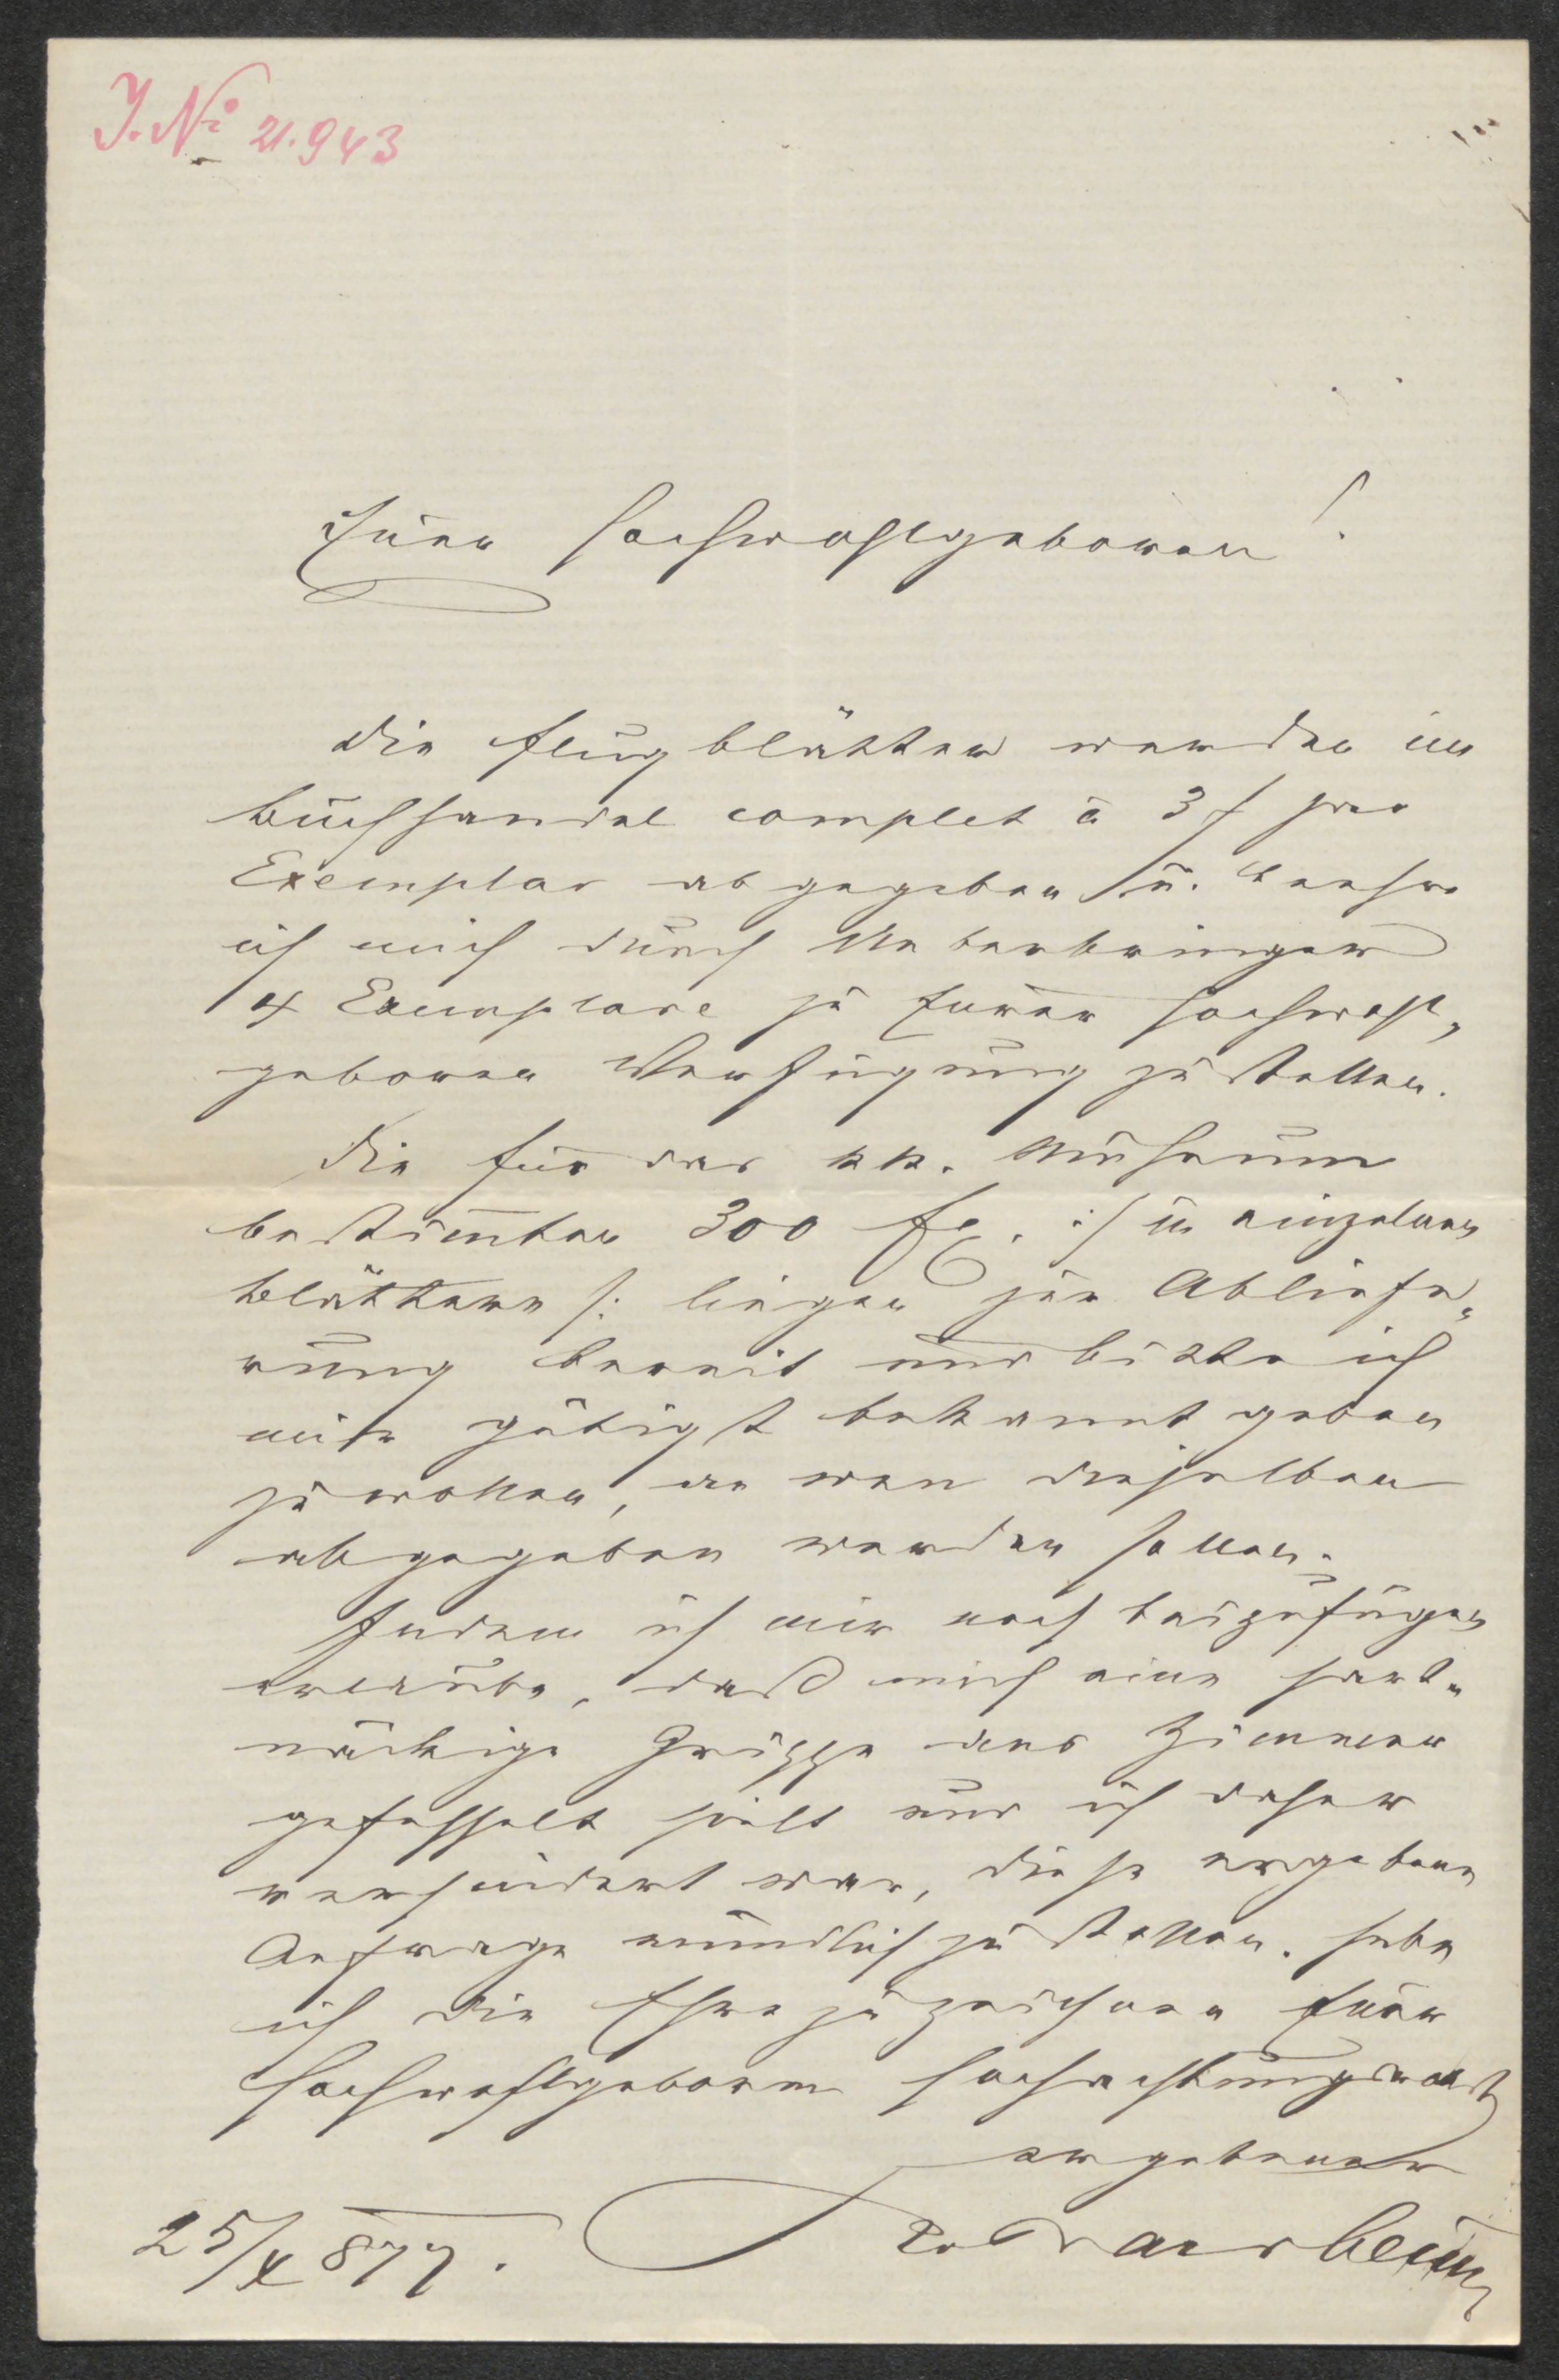 J. No 21.943
Euer Hochwohlgeboren!
Die Flugblätter werden im
Buchhandel complet à 3 f pro
Exemplar abgegeben u. beehre
ich mich durch Ueberbringer
4 Exemplare zu Euerer Hochwohl„
geboren Verfügung zu stellen.
Die für das kk. Museum
bestim̅ten 300 Ex. :/ in einzelnen
Blättern /: liegen zur Abliefe„
rung bereit und bitte ich
mir gütigst bekannt geben
zu wollen, an wen dieselben
abgegeben werden sollen.
Indem ich mir noch beizufügen
erlaube, daß mich eine hart„
näckige Grippe ans Zimmer
gefesselt hielt und ich daher
verhindert war, diese ergebene
Anfrage mündlich zu stellen. habe
ich die Ehre zu zeichnen Euer
Hochwohlgeboren hochachtungsvollst
ergebener
25/4 877.